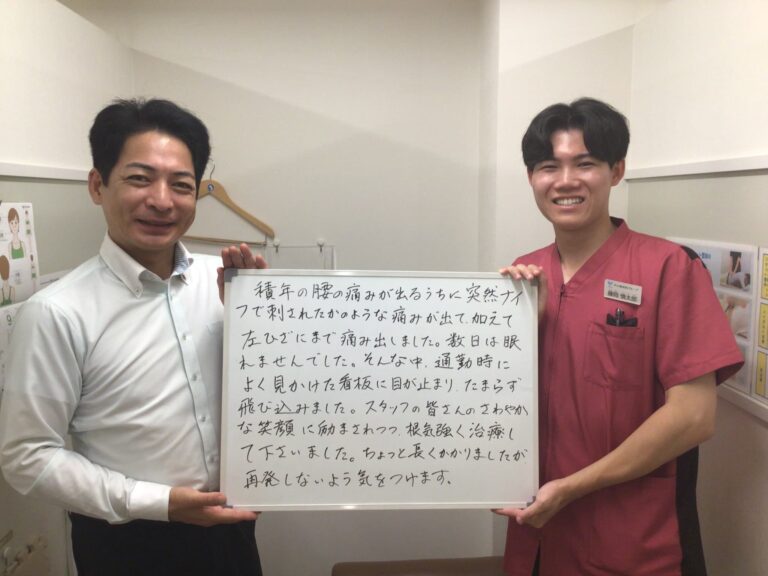 積年の腰の痛みが出るうちに突然ナイ
フで刺されたかのような痛みが出て、加えて
左ひざにまで痛み出しました。数日は眠
れませんでした。そんな中、通勤時に
よく見かけた看板に目が止まり、たまらず
飛び込みました。スタッフの皆さんのさわやか
な笑顔に励まされつつ、根気強く治療し
て下さいました。ちょっと長くかかりましたが
再発しないよう気をつけます。